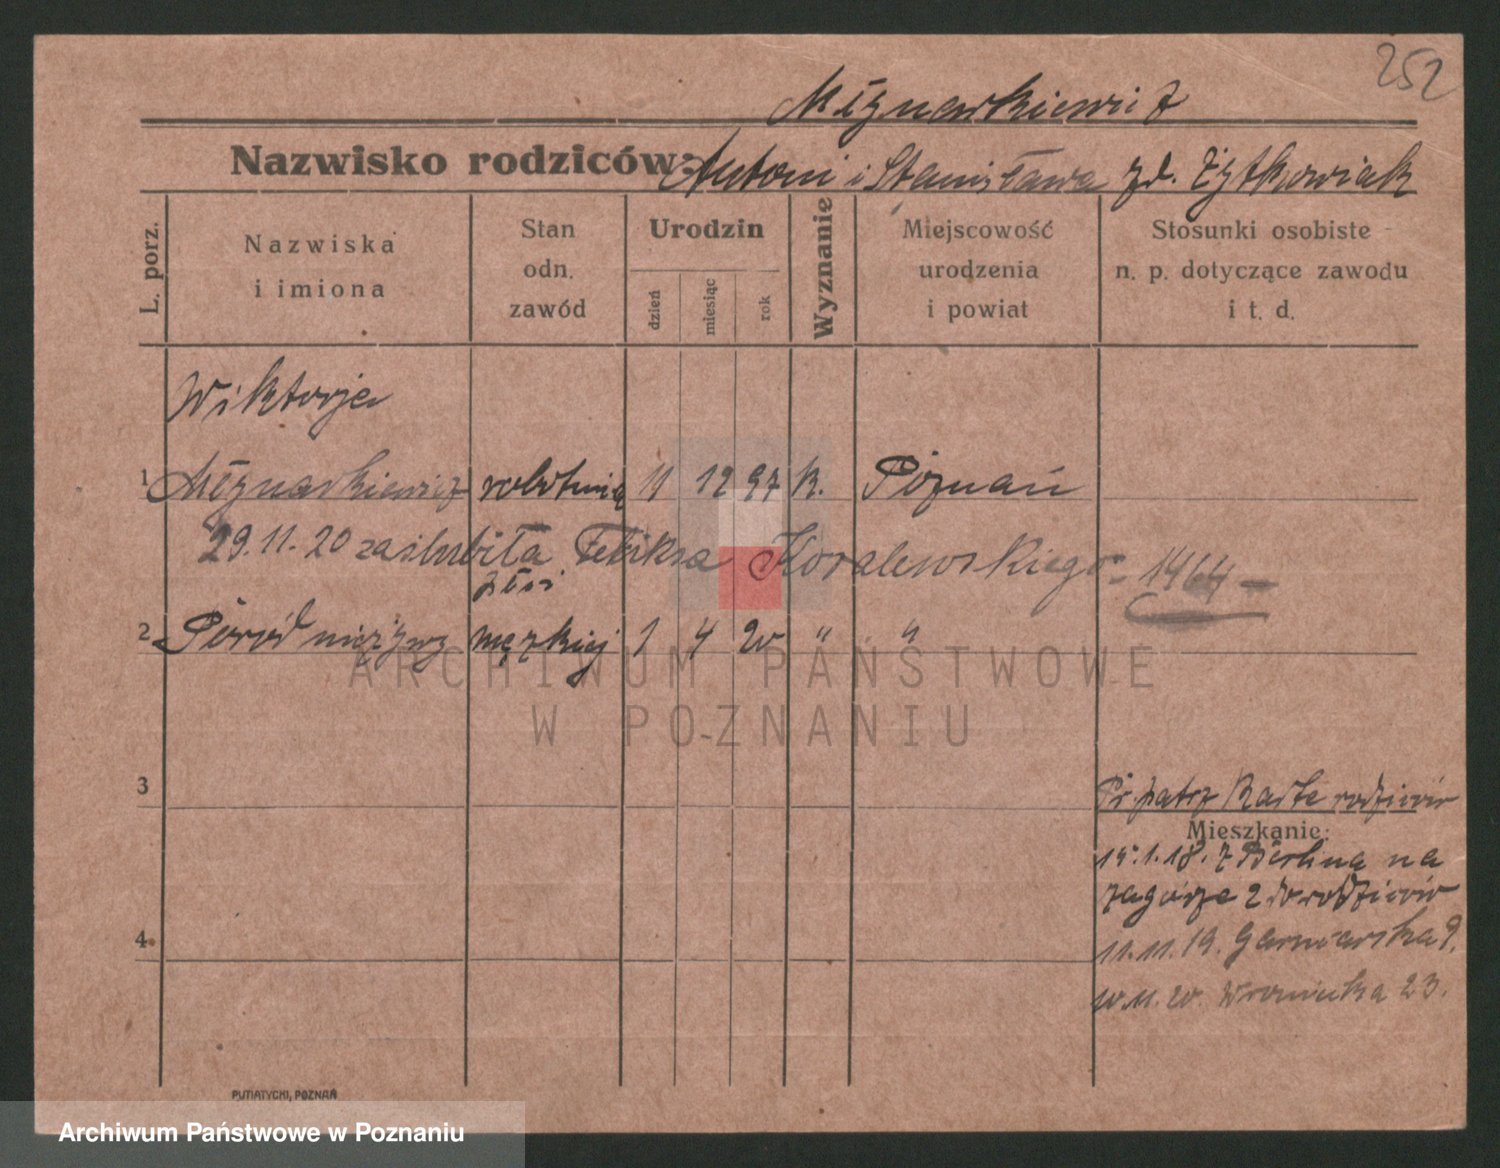 252
Młynarkiewicz
Nazwisko rodziców: Antoni i Stanisława zd. Żytkowiak
L. porz.
Nazwiska
i imiona
Stan
odn.
zawód
Urodzin
dzień
miesiąc
rok
Wyznanie
Miejscowość
urodzenia
i powiat
Stosunki osobiste
n. p. dotyczące zawodu
i t. d.
Wiktorja
1 Młynarkiewicz robotnica 11 12 97 k. Poznań
29.11.20 zaślubiła Feliksa Koralewskiego - 1464 -
płci
2 Poród nieżywy męzkiej 1 4 20 " "
3
Pr. patrz Karte rodziców
Mieszkanie:
15.1.18. z Berlina na
Zagórze 2 do rodziców
4.
11.11.19. Garncarska 9.
20.11.20. Wroniecka 23.
PUTIATYCKI, POZNAŃ
ARCHIWUM PAŃSTWOWE
W POZNANIU
Archiwum Państwowe w Poznaniu